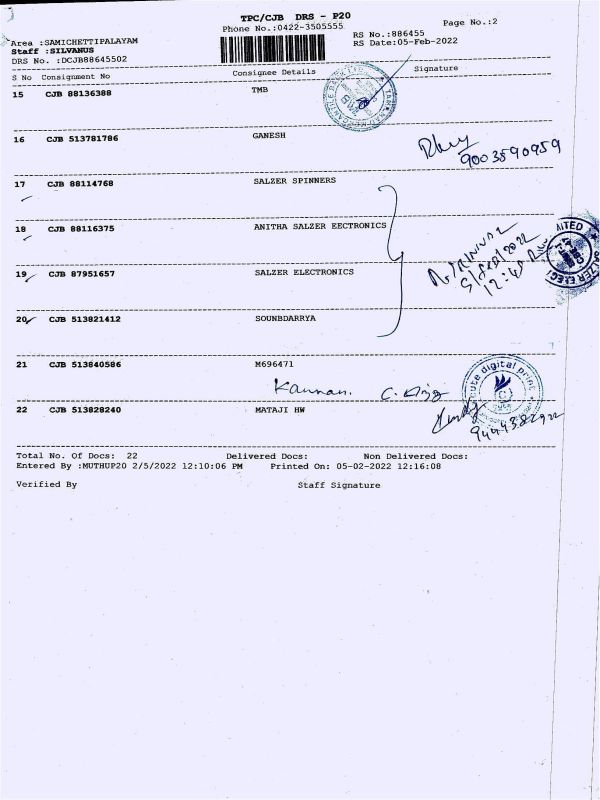 TPC/CJB DRS - P20
Phone No.:0422-3505555
Page No.:2
RS No.:886455
RS Date:05-Feb-2022
Area :SAMICHETTIPALAYAM
Staff :SILVANUS
DRS No. :DCJB88645502
S No Consignment No Consignee Details Signature
15 CJB 88136388 TMB
16 CJB 513781786 GANESH
9003590959
17 CJB 88114768 SALZER SPINNERS
18 CJB 88116375 ANITHA SALZER EECTRONICS
5/FEB/2022
12:45
19 CJB 87951657 SALZER ELECTRONICS
20 CJB 513821412 SOUNBDARRYA
21 CJB 513840586 M696471
Kannan.
digital print
22 CJB 513828240 MATAJI HW
Total No. Of Docs: 22 Delivered Docs: Non Delivered Docs:
Entered By :MUTHUP20 2/5/2022 12:10:06 PM Printed On: 05-02-2022 12:16:08
Verified By Staff Signature